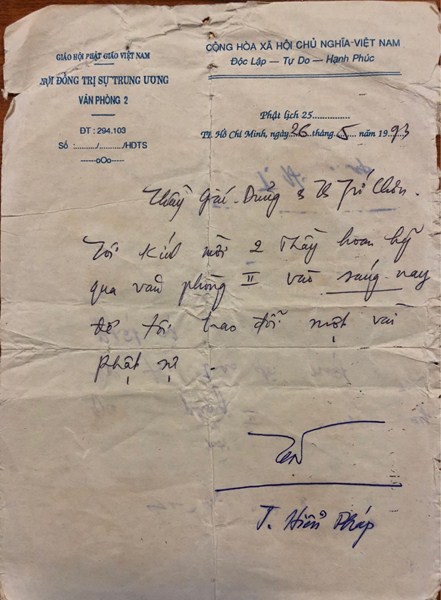 GIÁO HỘI PHẬT GIÁO VIỆT NAM
HỘI ĐỒNG TRỊ SỰ TRUNG ƯƠNG
VĂN PHÒNG 2
ĐT : 294.103
Số :........./........./HĐTS
------oOo------
CỘNG HÒA XÃ HỘI CHỦ NGHĨA-VIỆT NAM
Độc Lập — Tự Do — Hạnh Phúc
Phật lịch 25...............
TP. Hồ Chí Minh, ngày 26 tháng 5 năm 1993
Thầy Giác Dũng & Trí Chơn.
Tôi kính mời 2 Thầy hoan hỷ
qua văn phòng II vào sáng nay
để tôi trao đổi một vài
Phật sự.
T. Hiển Pháp